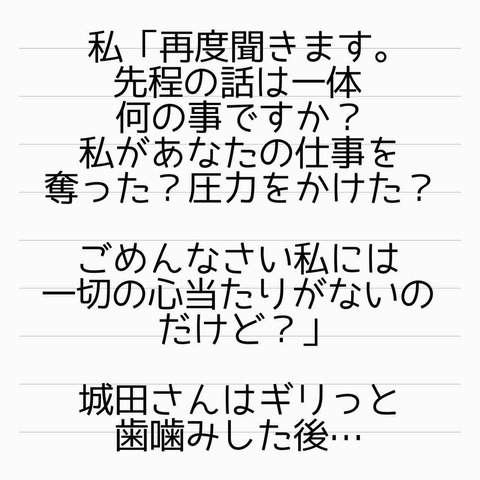 私「再度聞きます。
先程の話は一体
何の事ですか？
私があなたの仕事を
奪った？圧力をかけた？
ごめんなさい私には
一切の心当たりがないの
だけど？」
城田さんはギリっと
歯噛みした後…